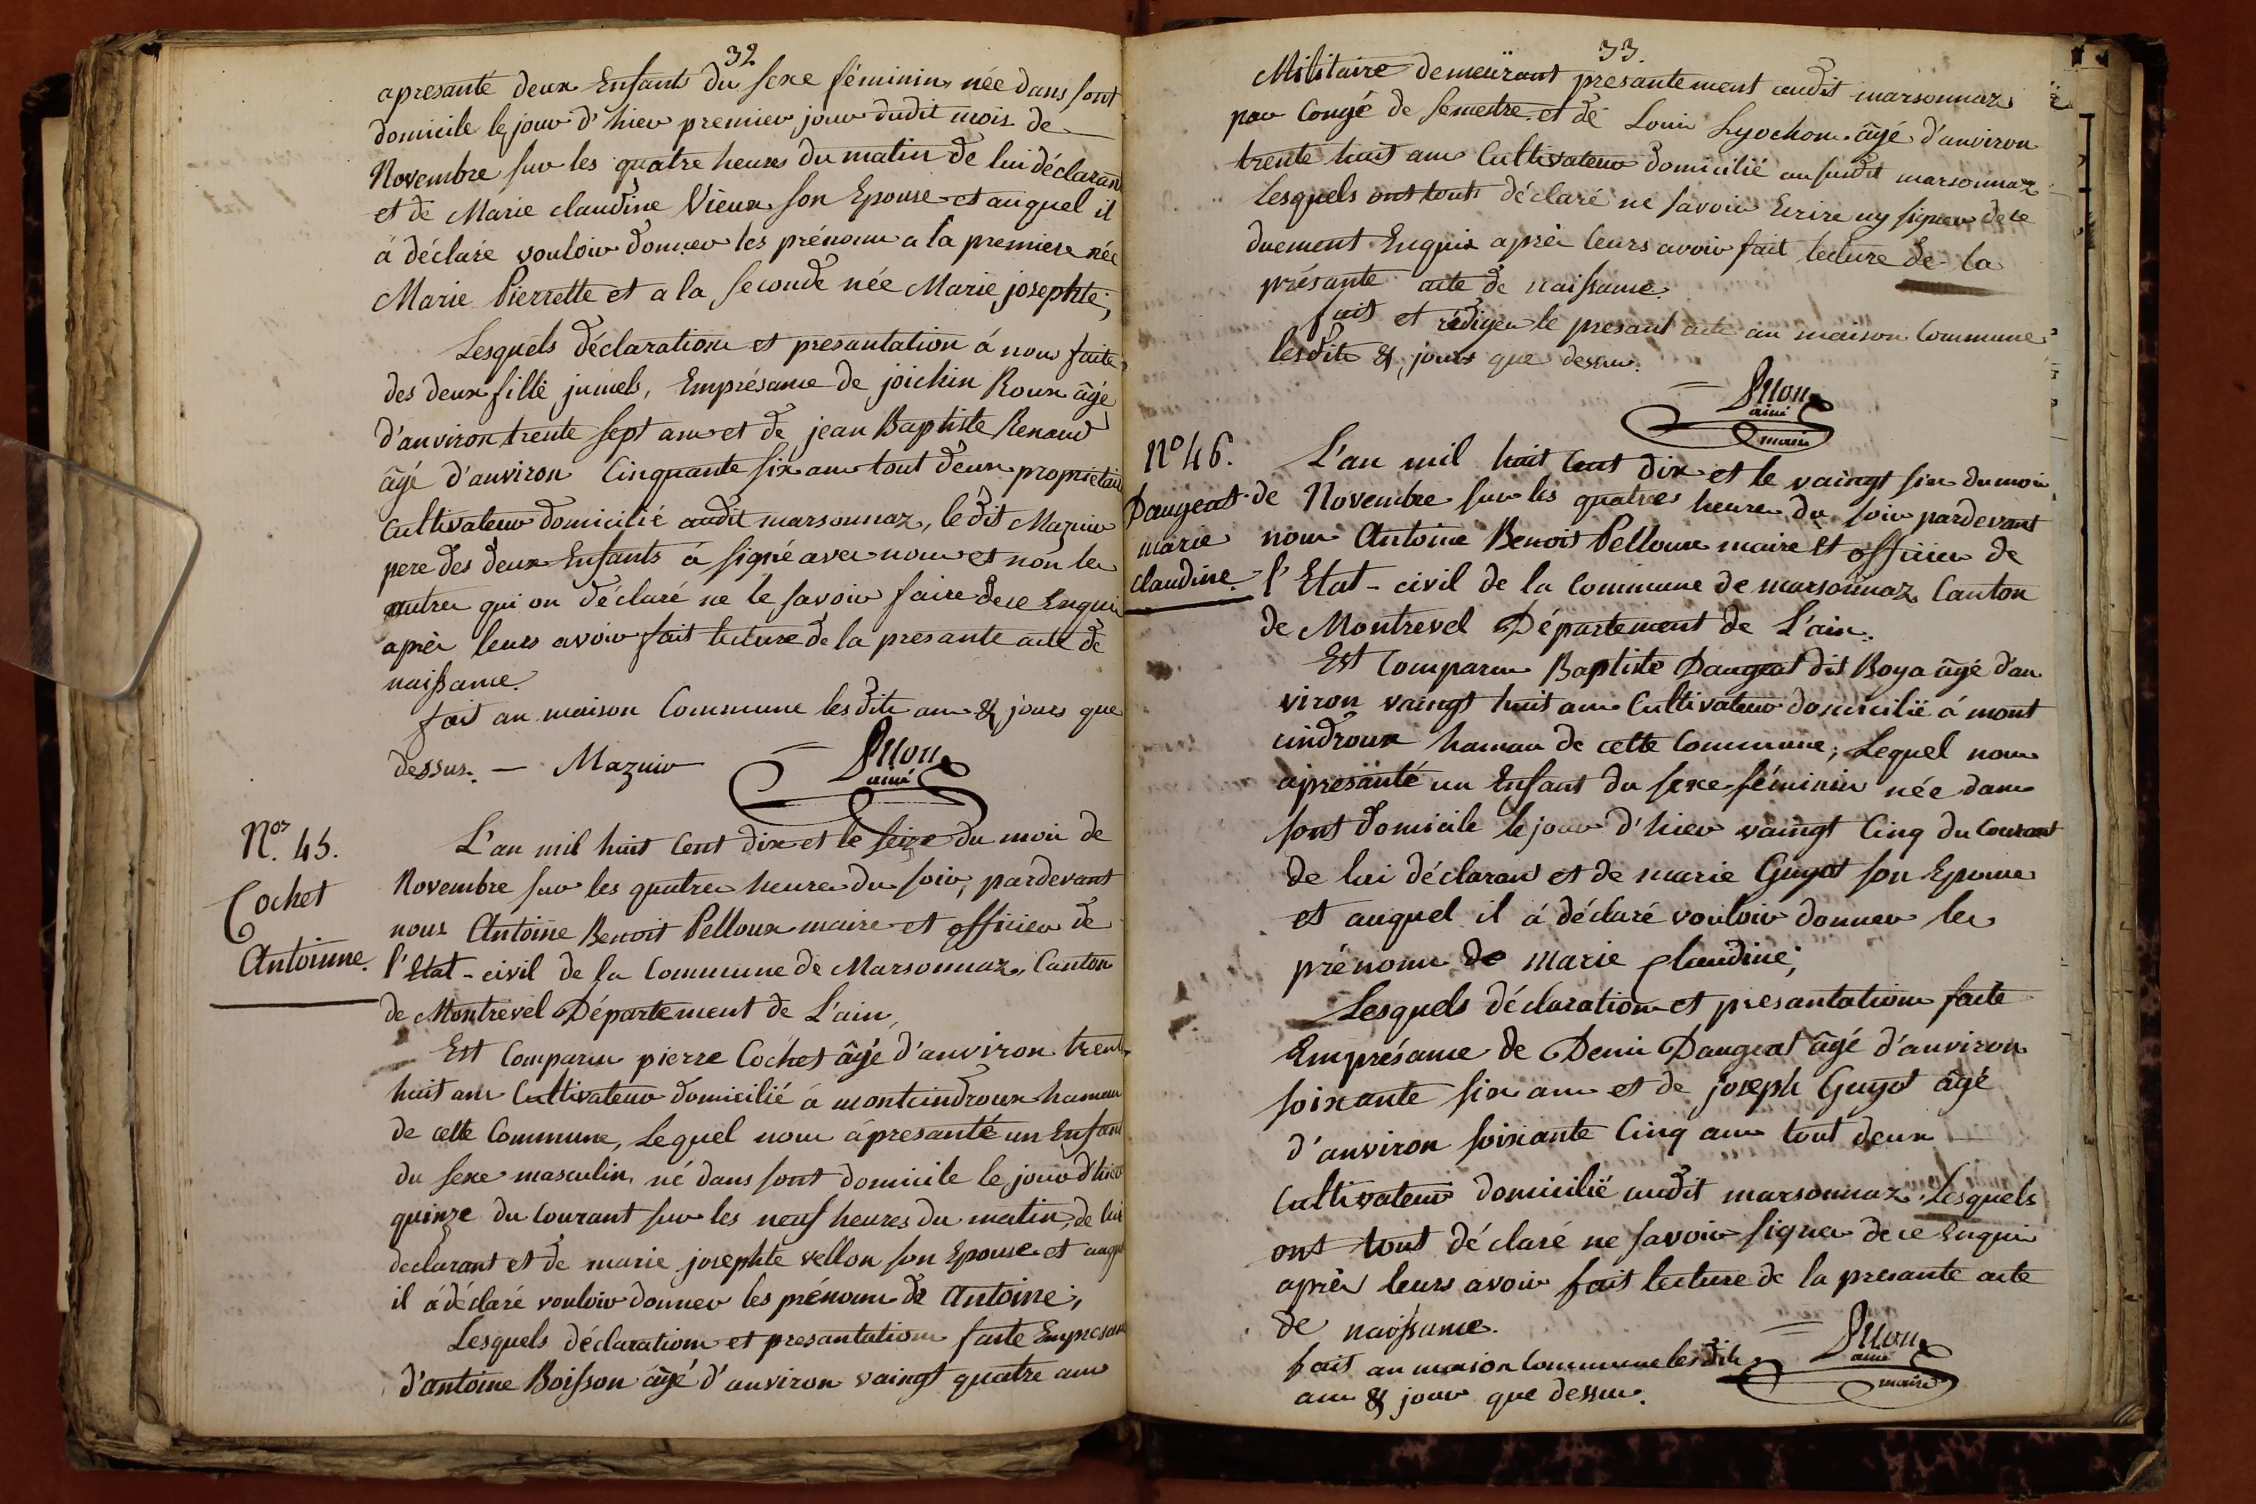 32
apresanté deux Enfants du sexe féminin née dans sont
domicile le jour d'hier premier jour dudit mois de
Novembre sur les quatre heures du matin de lui déclarant
et de Marie claudine Vieux son Epouse et auquel il
à déclaré vouloir donner les prénoms a la premiere née
Marie Pierrette et a la seconde née Marie josephte;
Lesquels déclarations et presantation à nous faite
des deux fille jumels, Emprésance de joichin Roux âgé
d'anviron trente sept ans et de jean Baptiste Renaud
âgé d'anviron Cinquante six ans tout deux propriétaire
Cultivateur domicilié audit marsonnaz, le dit Mazuir
pere des deux Enfants à signé avec nous et non les
autres qui on déclaré ne le savoir faire de ce Enquis
après leurs avoir fait lecture de la presante acte de
naissance.
fait an maison Commune lesdits ans & jours que
dessus. — Mazuir
ainé
Nos. 45.
Cochet
Antoinne.
L'an mil huit Cent dix et le seize du mois de
Novembre sur les quatres heures du soir, pardevant
nous Antoine Benoit Pelloux maire et officier de
l'Etat-civil de la Commune de Marsonnaz, Canton
de Montrevel Département de L'ain,
Est Comparus pierre Cochet âgé d'anviron trente
huit ans Cultivateur domicilié à montcindroux hameau
de cette Commune, Lequel nous àpresanté un Enfant
du sexe masculin, né dans sont domicile le jour d'hier
quinze du Courant sur les neuf heures du matin, de lui
declarant et de marie josephte vellon son Epouse et auquel
il à déclaré vouloir donner les prénoms de Antoine;
Lesquels déclarations et presantations faite Empresance
d'antoine Boisson âgé d'anviron vaingt quatre ans
33.
Militaire demeürant présantement audit marsonnaz
par Congé de semestre et de Louis Lyochon âgé d'anviron
trente huit ans Cultivateur domicilié ausudit marsonnaz
Lesquels ont touts déclaré ne savoir Ecrire ny signer de ce
duement Enquis après leurs avoir fait lecture de la
présante acte de naissance.
fait et rédiger le presant acte an maison Commune
lesdits & jours que dessus.
ainé
maire
No 46.
Daugeat
marie
claudine
L'an mil huit Cent dix et le vaingt six du mois
de Novembre sur les quatres heures du soir pardevant
nous Antoine Benoit Pelloux maire et officier de
l'Etat-civil de la Commune de marsonnaz Canton
de Montrevel Département de L'ain.
Est Comparus Baptiste Daugeat dit Boya âgé d'an
viron vaingt huit ans Cultivateur domicilié à mont
cindroux hameau de cette Commune, Lequel nous
apresanté un Enfant du sexe féminin née dans
sont domicile le jour d'hier vaingt Cinq du Courant
de lui déclarant et de marie Guyot son Epouse
et auquel il à déclaré vouloir donner les
prénoms de marie Claudine;
Lesquels déclaration et presantations faite
Emprésance de Denis Daugeat âgé d'anviron
soixante six ans et de joseph Guyot âgé
d'anviron soixante Cinq ans tout deux
Cultivateur domicilié audit marsonnaz, Lesquels
ont tout déclaré ne savoir signer de ce Enquis
après leurs avoir fait lecture de la presante acte
de naissance.
fait an maison Commune lesdits
ans & jour que dessus.
ainé
maire